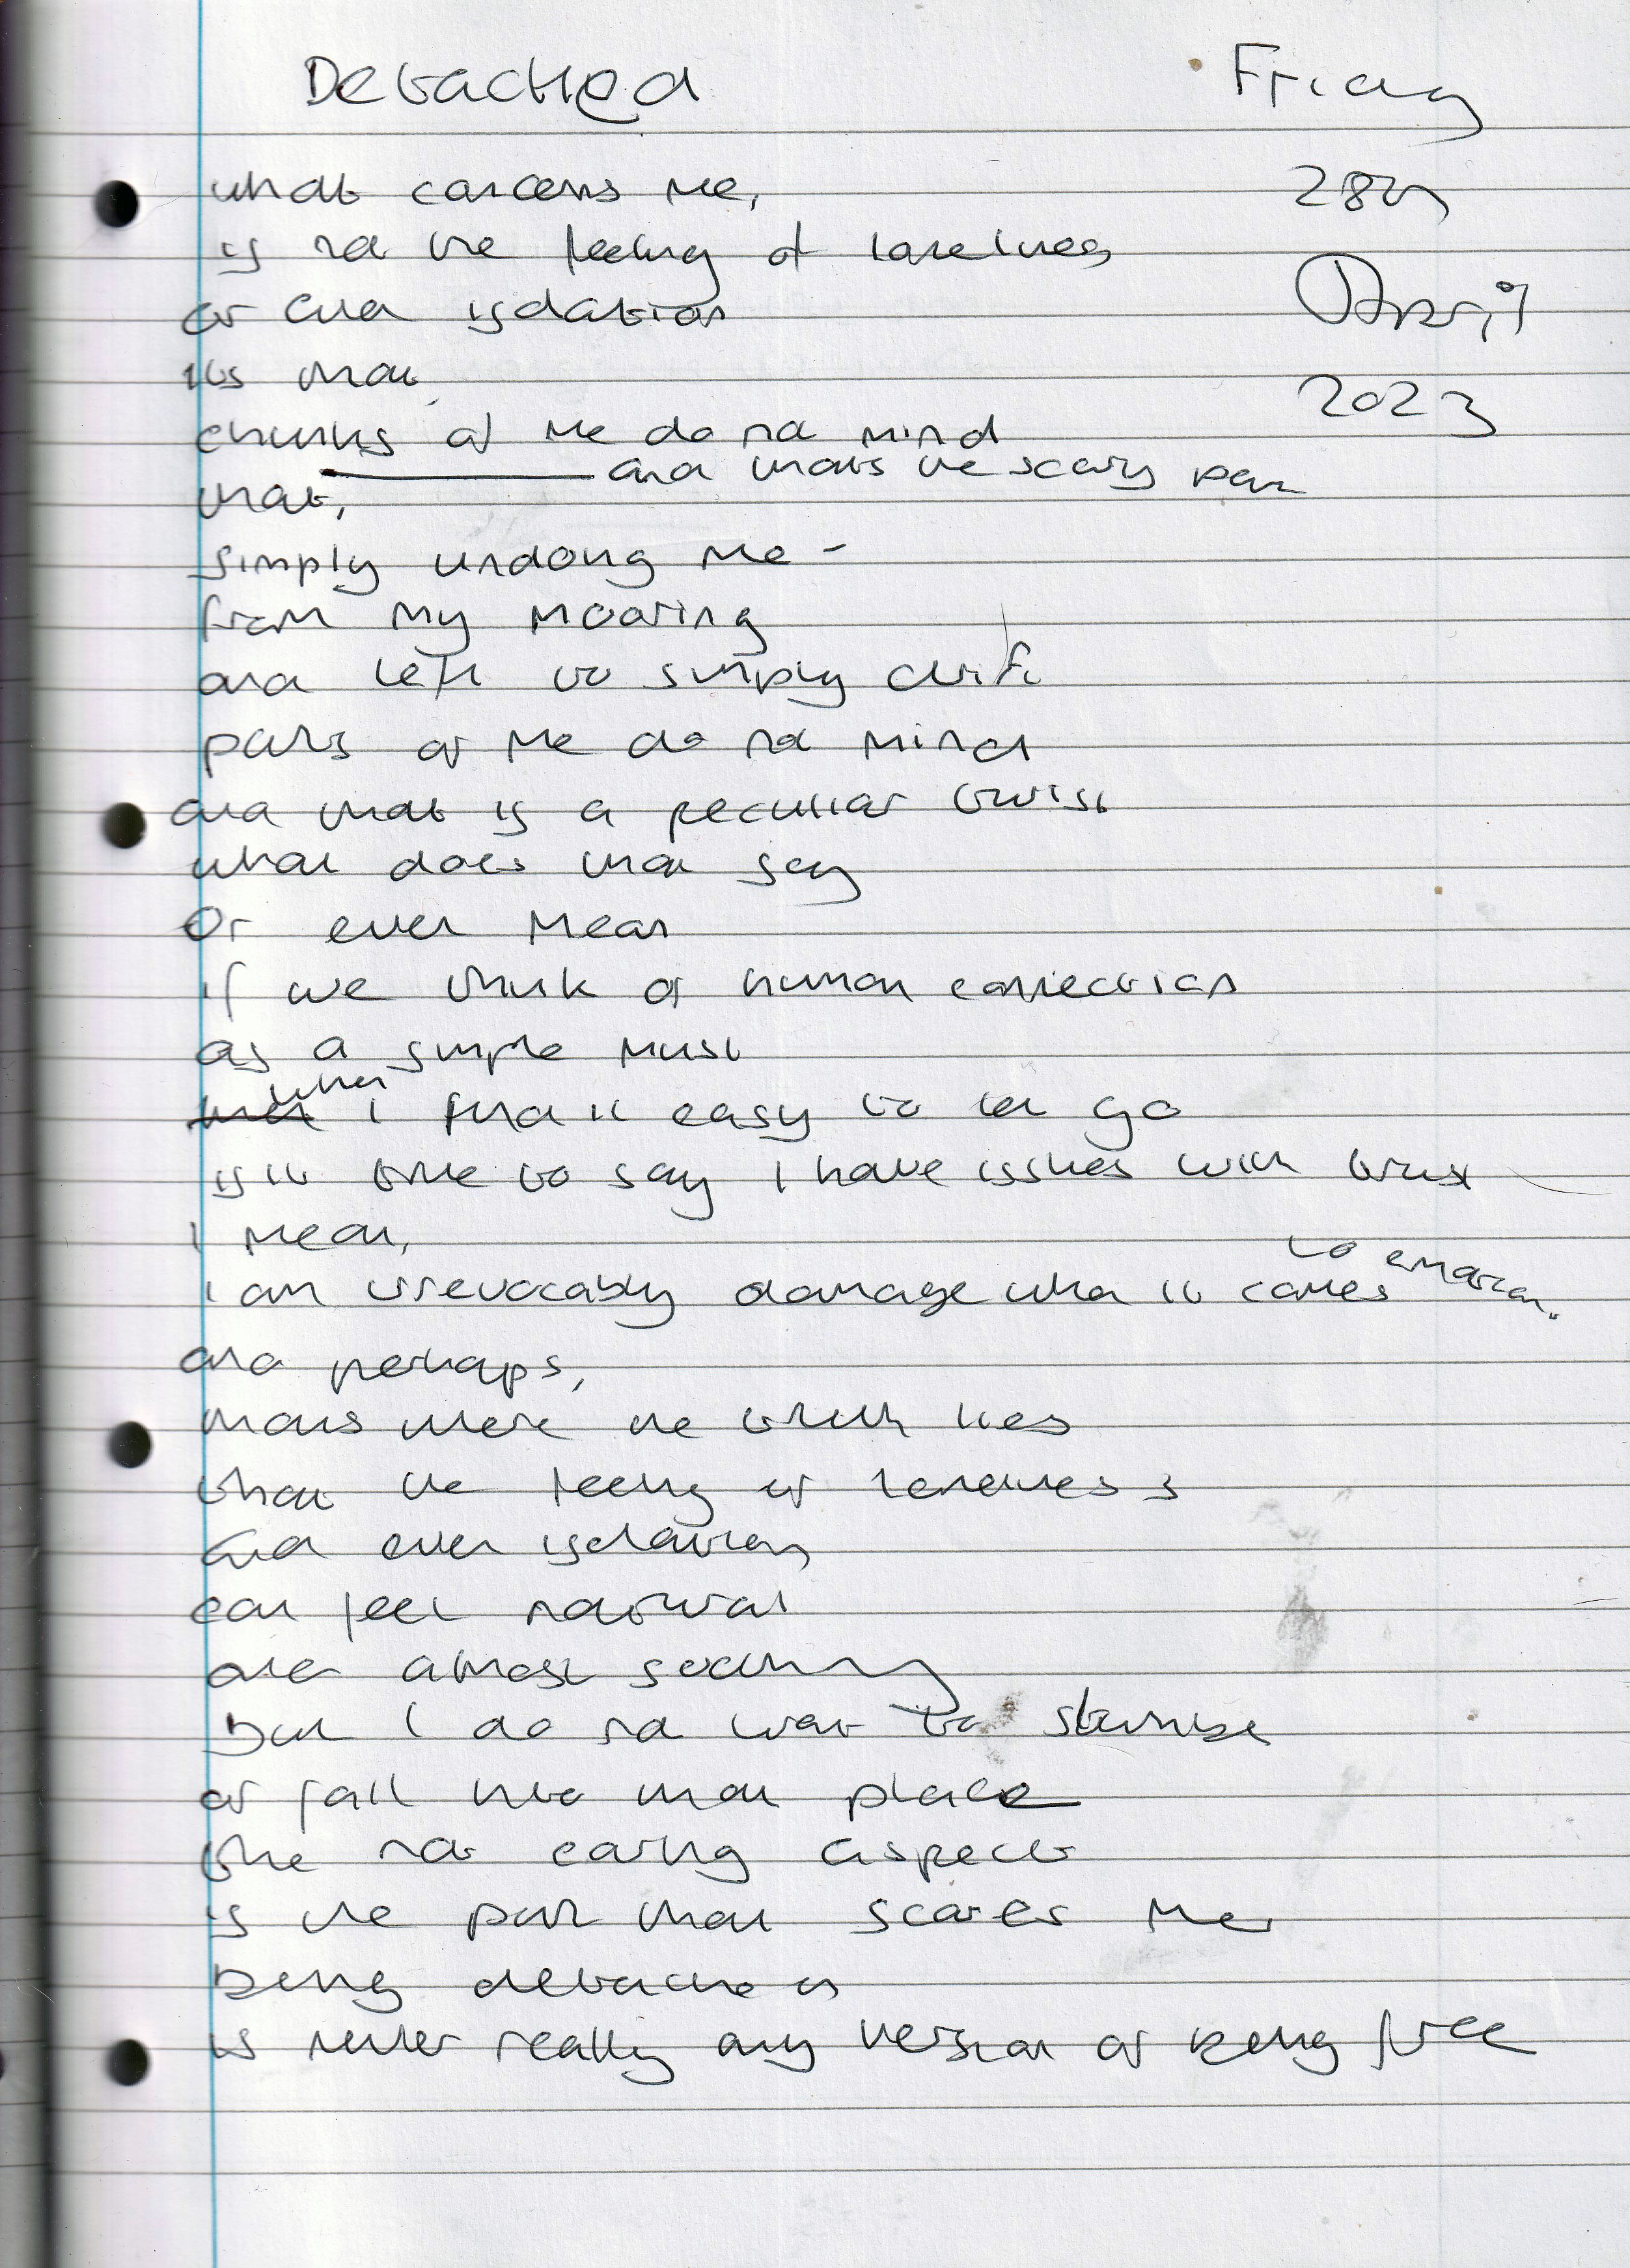 Detached
Friday
28th
April
2023
what concerns me,
is not the feeling of loneliness
or even isolation
its that
chunks of me do not mind
and thats the scary part
that,
simply undoing me -
from my mooring
and left to simply drift
parts of me do not mind
and that is a peculiar twist
what does that say
Or even mean
if we think of human connection
as a simple must
when I find it easy to let go
is it time to say I have issues with trust
I mean,
I am irrevocably damage when it comes to emotion.
and perhaps,
thats where the truth lies
that the feeling of loneliness
and even isolation
can feel natural
and almost soothing
But I do not want to stumble
or fall into that place
the not caring aspect
is the part that scares me
being detached
is never really any version of being free